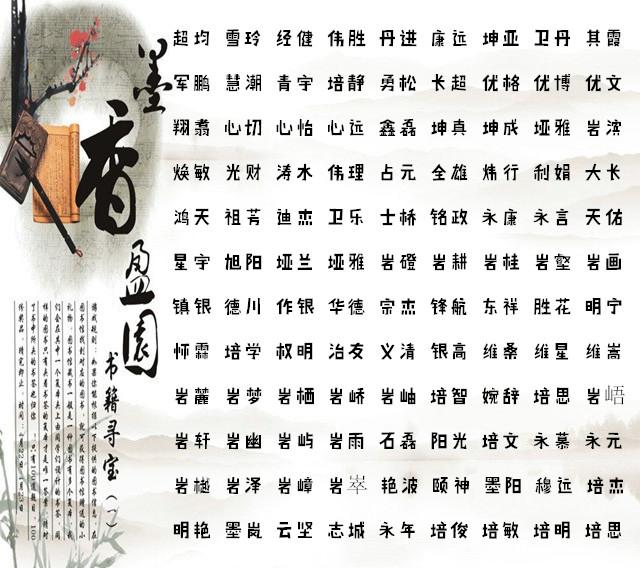 墨香盈园
书籍寻宝(一)
超均 雪玲 经健 伟胜 丹进 康远 坤亚 卫丹 其霞
军鹏 慧潮 青宇 培静 勇松 长超 优格 优博 优文
翔翥 心切 心怡 心远 鑫磊 坤真 坤成 垭雅 岩滨
焕敏 光财 涛水 伟理 占元 全雄 炜行 利娟 大长
鸿天 祖芳 迪杰 卫乐 士桥 铭政 永康 永言 天佑
星宇 旭阳 垭兰 垭雅 岩磴 岩耕 岩桂 岩壑 岩画
镇银 德川 作银 华德 宗杰 锋航 东祥 胜花 明宁
怀霖 培学 权明 治友 义清 银高 维桑 维星 维嵩
岩麓 岩梦 岩栖 岩峤 岩岫 培智 婉辞 培思 岩峿
岩轩 岩幽 岩屿 岩雨 石磊 阳光 培文 永慕 永元
岩樾 岩泽 岩嶂 岩崒 艳波 颐神 墨阳 穆远 培杰
明艳 墨岚 云坚 志城 永年 培俊 培敏 培明 培思